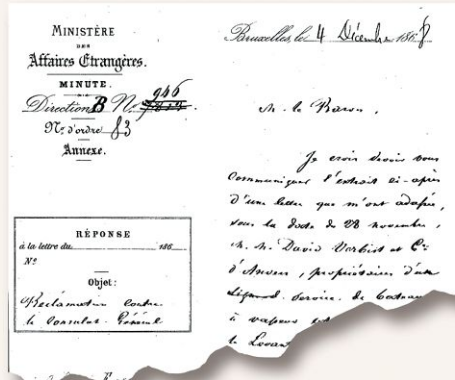 MINISTÈRE
DES
Affaires Étrangères.
MINUTE.
Direction B N.º 946
Nº d'ordre 83
Annexe.
RÉPONSE
à la lettre du 186
Nº
Objet:
Réclamation contre
le Consulat-Général
Bruxelles, le 4 Décembre 1868
M. le Baron,
Je crois devoir vous
communiquer l'extrait ci-après
d'une lettre que m'ont adressée,
sous la date de 28 novembre,
M. M. David Verbist et Cie
d'Anvers, propriétaires d'un
service de bateaux
à vapeur
le Levant